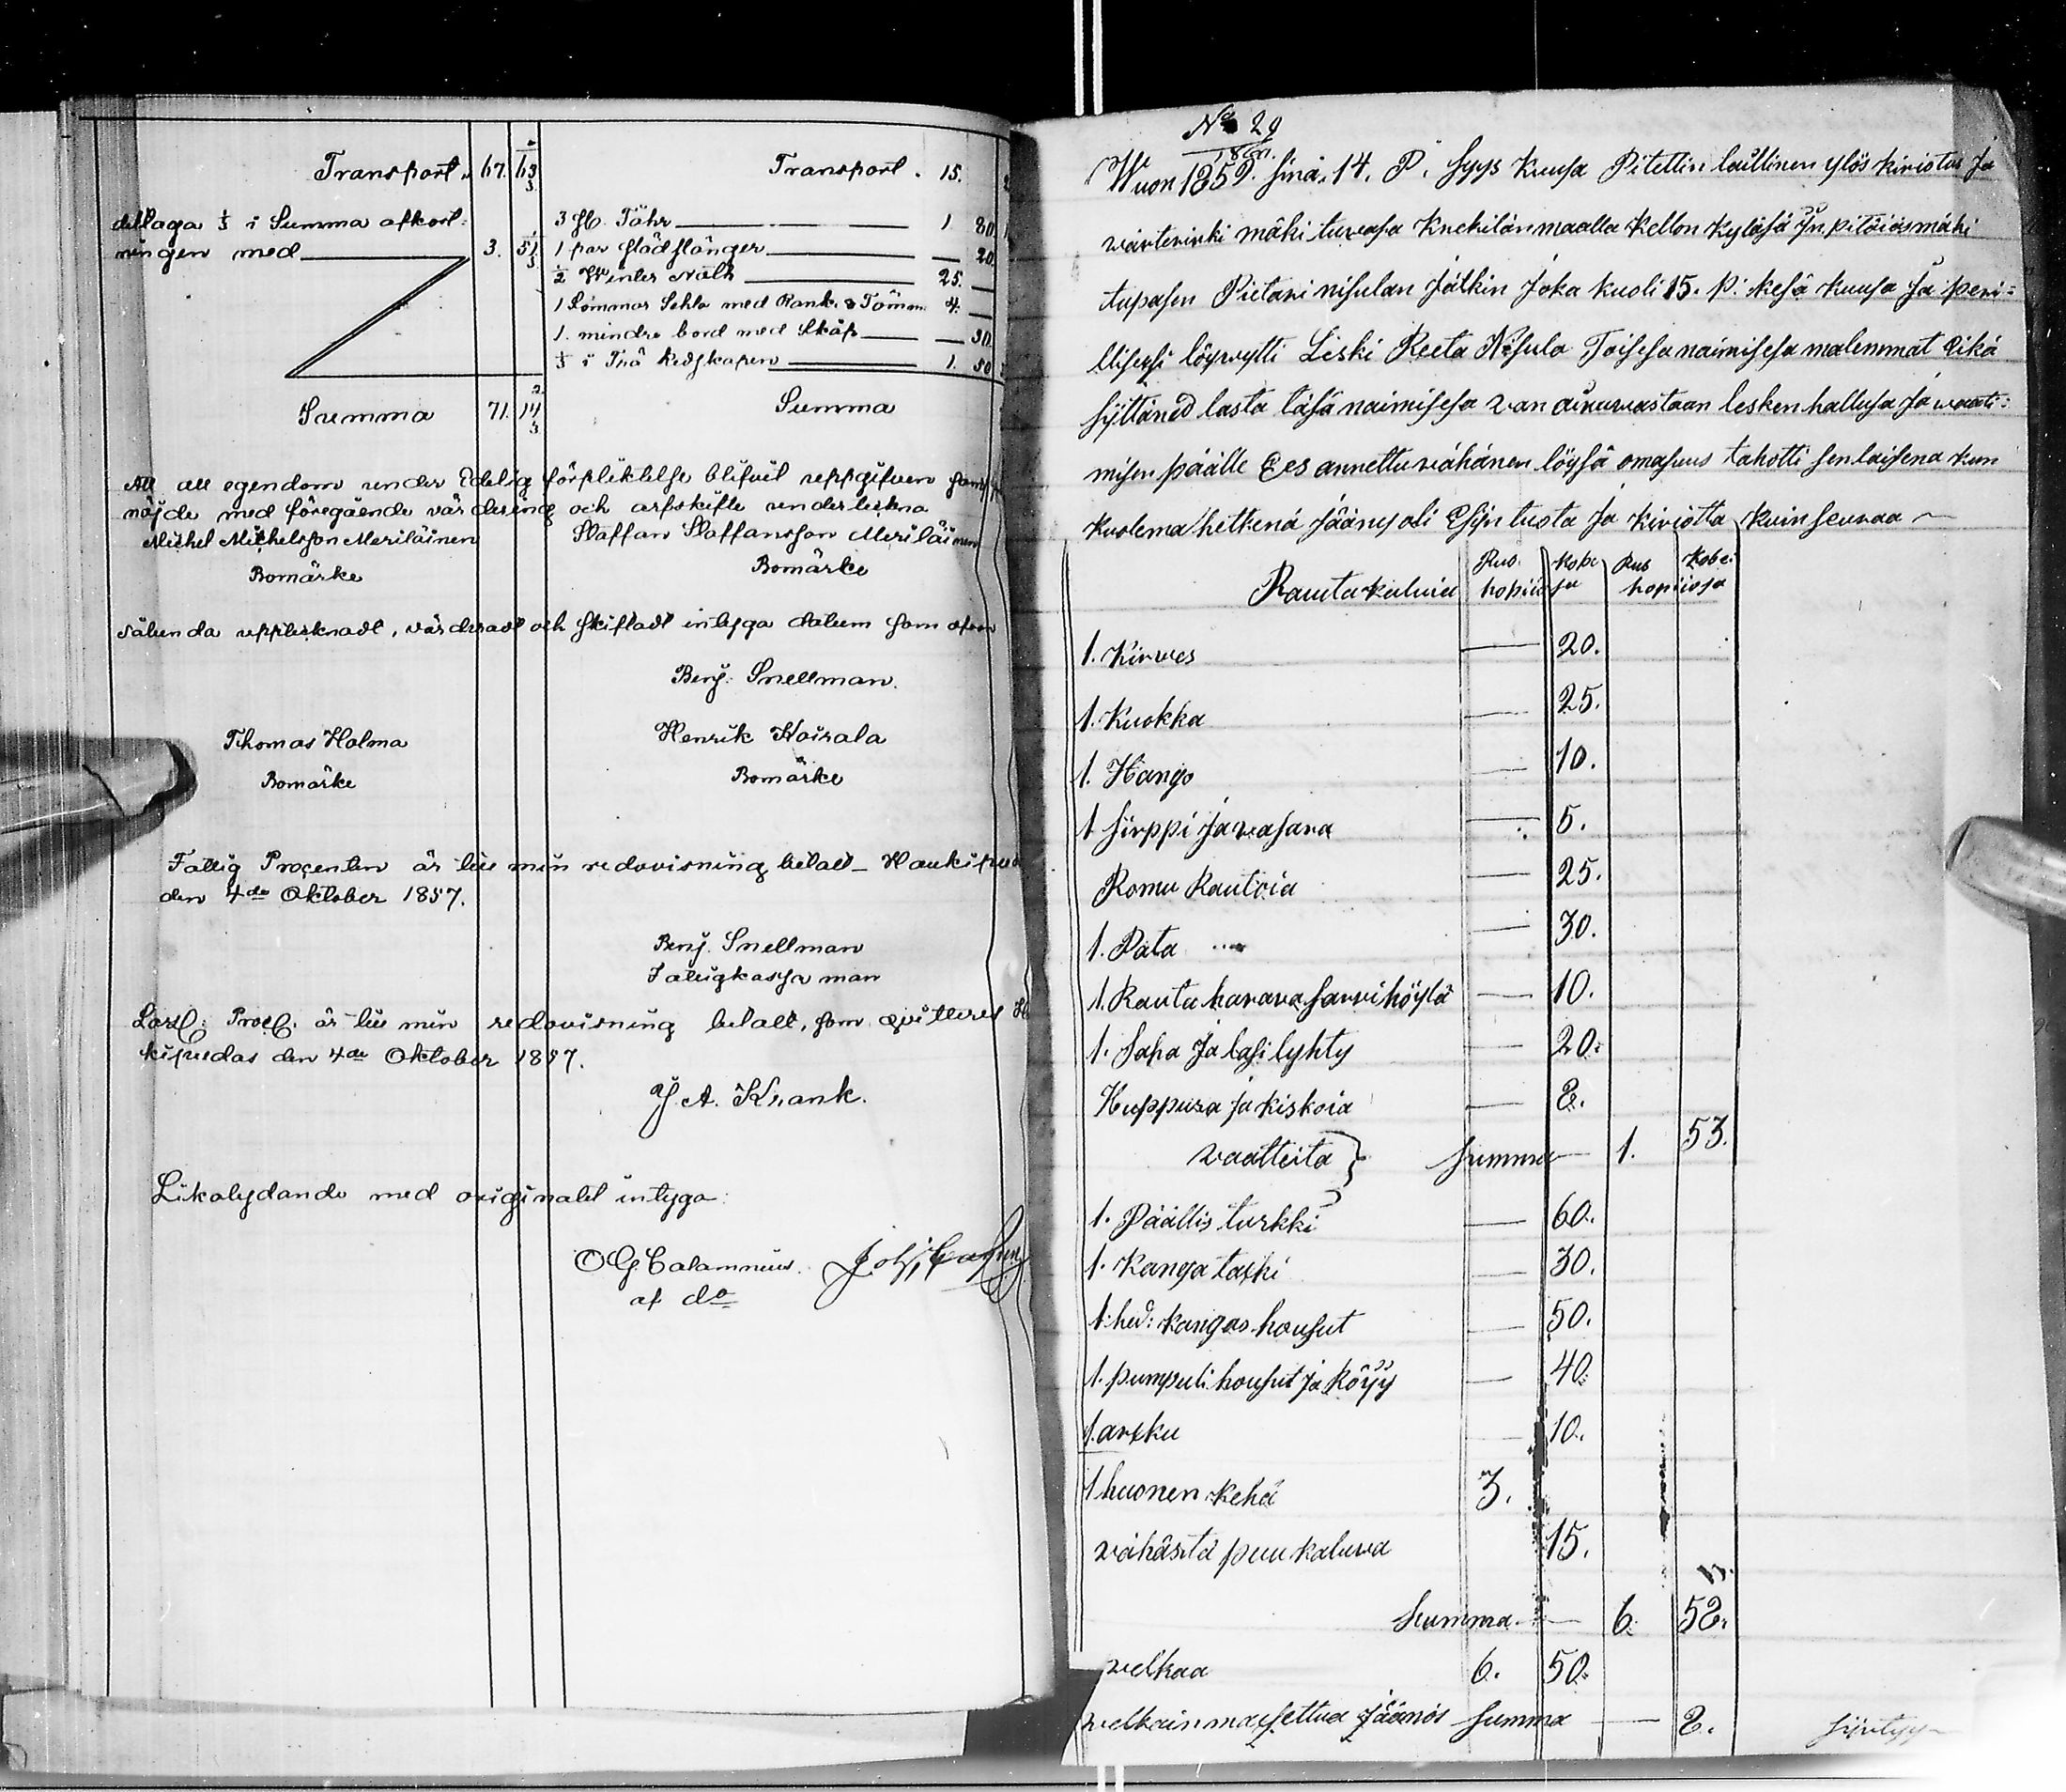 Transport. 67. 63 2/3
deltaga 1/3 i Summa afkort-
ningen med 3. 51 1/3
Summa 71. 14 2/3
Transport. 15.
3 st. Tåhr 1 80
1 par Slädstänger — 20
1/2 Winter Nält 25. —
1 Sommar Sehla med Rank & Tömm 4. —
1. mindre bord med Skåp — 30
1/3 i Trä Redskapen 1. 50
Summa
Att all egendom under Edelig förpliktelse blifvit uppgifven samt
nöjde med föregående värdering och arfskifte underteckna
Michel Michelsson Meriläinen Staffan Staffansson Meriläinen
Bomärke Bomärke
Sålunda upptecknadt, värderadt och skiftadt intyga datum som ofvan
Benj. Snellman.
Thomas Halma Henrik Koirala
Bomärke Bomärke
Fattig Procenten är till min redovisning betalt – Haukipud
den 4de Oktober 1857.
Benj. Snellman
Fattigkassa man
Proct. är till min redovisning betalt, som qvitteras
kipudas den 4de Oktober 1857.
J. A. Krank.
Likalydande med originalet intyga:
O G Calamnius.
af do
No 29
Wuon 1859. sinä. 14. P. Syys Kuusa Pitettin laillinen ylös kirjotus Ja
wärterinki mäki tuwasa Knekilänmaalla Kellon Kyläsä Jn pitäiäsmäki
tupasen Pietari nisulan Jälkin Joka kuoli 15. p. kesä kuusa Ja peri-
llisexsi löywytti Leski Reeta Nisula Toisesa naimisesa malemmat Eikä
syttäned lasta täsä naimisesa wan ainuwastaan lesken hallusa Ja waati-
misen päälle Ees annettu wähänen löysä omasuus tahotti senlaisena kun
kuolema hetkenä Jäänyt oli Esijn tuota Ja kirjotta kuin seuraa
Rauta kaluia Rub. Kope Rub Kope
hopiiosa hopiiosa
1. Kirwes — 20.
1. Kuokka — 25.
1. Hango — 10.
1 sirppi Ja wasara — 5.
Romu Rautoia — 25.
1. Pata — 30.
1. Rauta harawa sarwi höylä — 10.
1. Saha Ja lasi lyhty — 20.
Kuppura Ja kiskoia — 8.
waatteita } summa — 1. 53.
1. Päällis turkki — 60.
1. Kanga takki — 30.
1. hu: kangas housut — 50.
1. pumpuli housut Ja Röyy — 40.
1. arkku — 10.
1 huonen kehä 3.
wähäsitä puu kaluwa 15.
Summa — 6. 58.
welkaa 6. 50.
welkain maxettua Jäänös summa — 8.